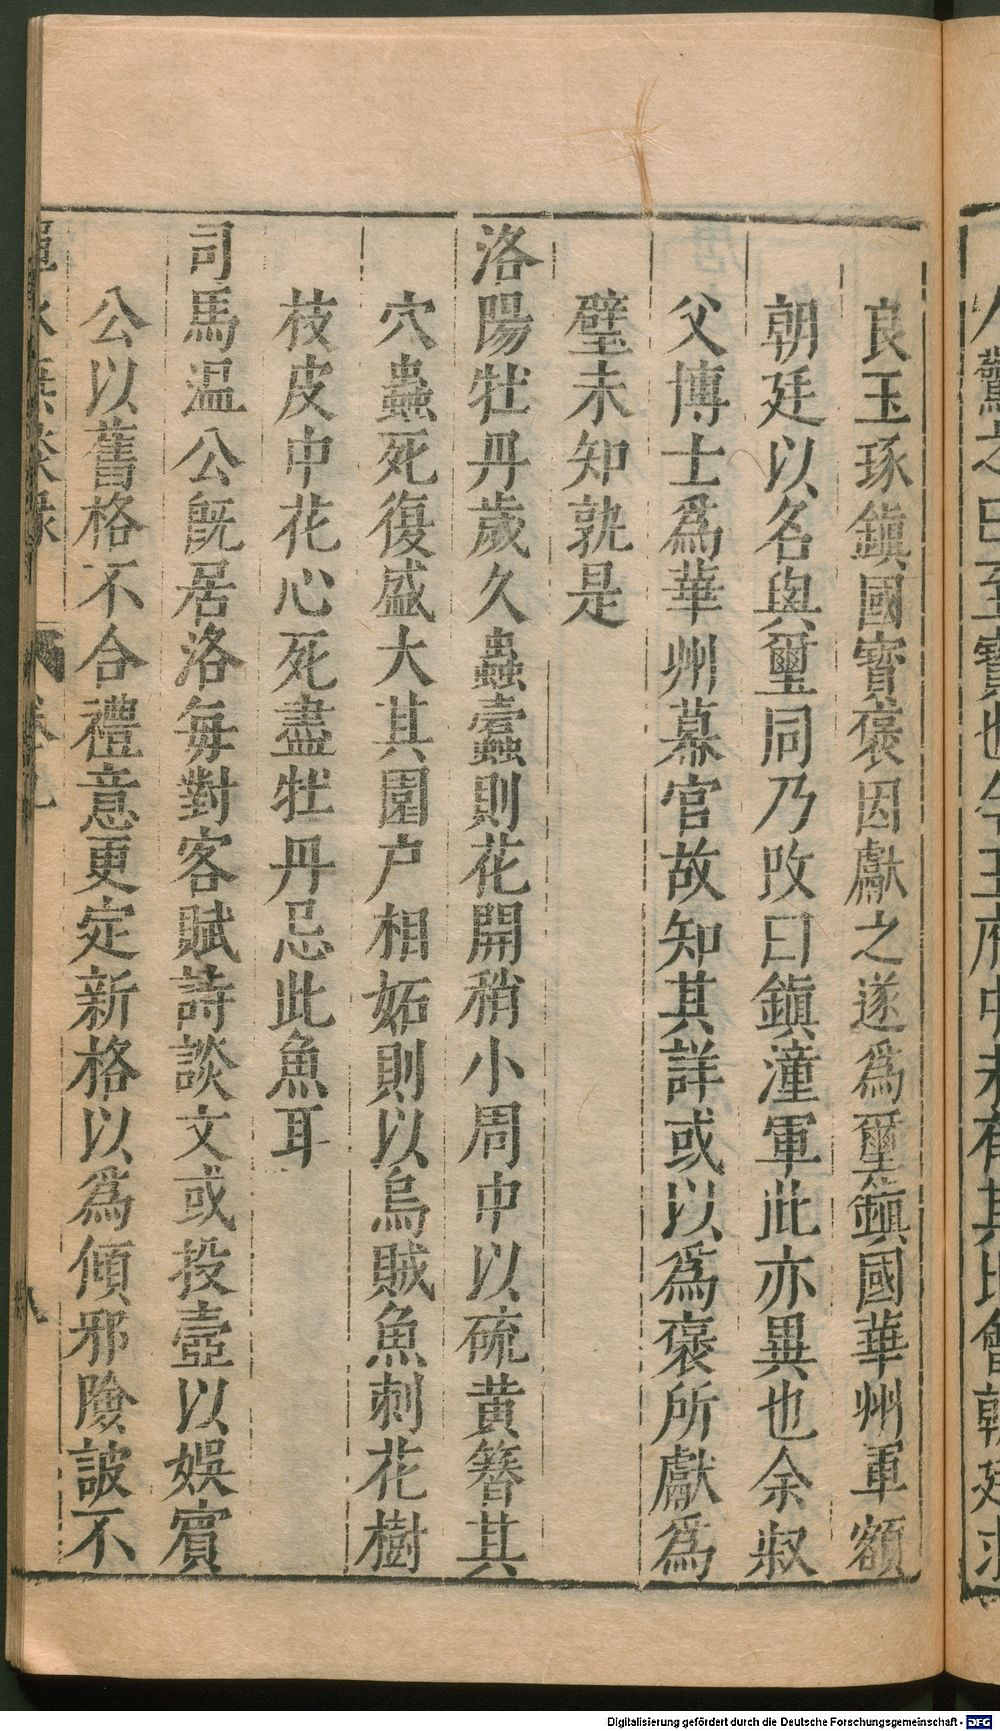 人驚之曰至寶也今王府中未有其比會朝廷求
良玉琢鎮國寶褒因獻之遂爲璽鎮國華州軍額
朝廷以名與璽同乃改曰鎮潼軍此亦異也余叔
父博士爲華州幕官故知其詳或以爲褒所獻爲
璧未知孰是
洛陽牡丹歲久蟲蠹則花開稍小周中以硫黄簪其
穴蟲死復盛大其園户相妬則以烏賊魚刺花樹
枝皮中花心死盡牡丹忌此魚耳
司馬温公旣居洛每對客賦詩談文或投壺以娛賓
公以舊格不合禮意更定新格以爲傾邪險詖不
澠水燕談録 卷九 八
Digitalisierung gefördert durch die Deutsche Forschungsgemeinschaft - DFG